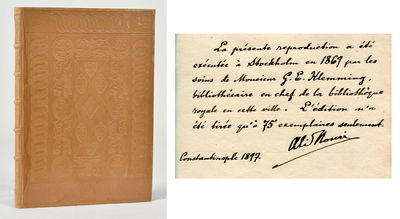 La présente reproduction a été
exécutée à Stockholm en 1869 par les
soins de Monsieur G. E. Klemming,
bibliothécaire en chef de la bibliothèque
royale en cette ville. L'édition n'a
été tirée qu'à 75 exemplaires seulement.
Ali Nouri
Constantinople 1897.